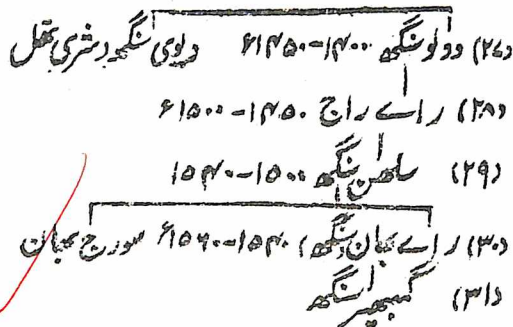 (۲۷) دولو سنگھ ۱۴۰۰-۱۴۵۰ء دیوی سنگھ
(۲۸) راے راج ۱۴۵۰-۱۵۰۰ء
(۲۹) سلھن سنگھ ۱۵۰۰-۱۵۴۰
(۳۰) راے بھان سنگھ، ۱۵۴۰-۱۵۶۰ء سورج بھان
(۳۱) گمبھیر سنگھ